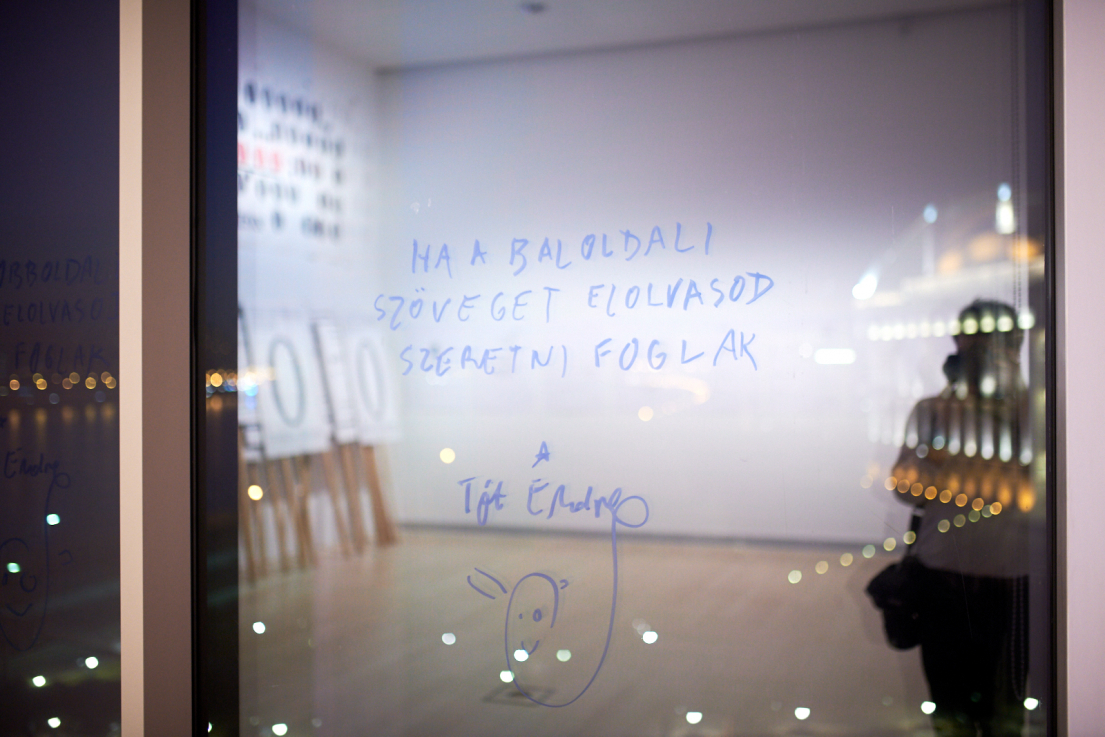 HA A BALOLDALI
SZÖVEGET ELOLVASOD
SZERETNI FOGLAK
A
Tót Endre
ELOLVASOD
FOGLAK
Endre